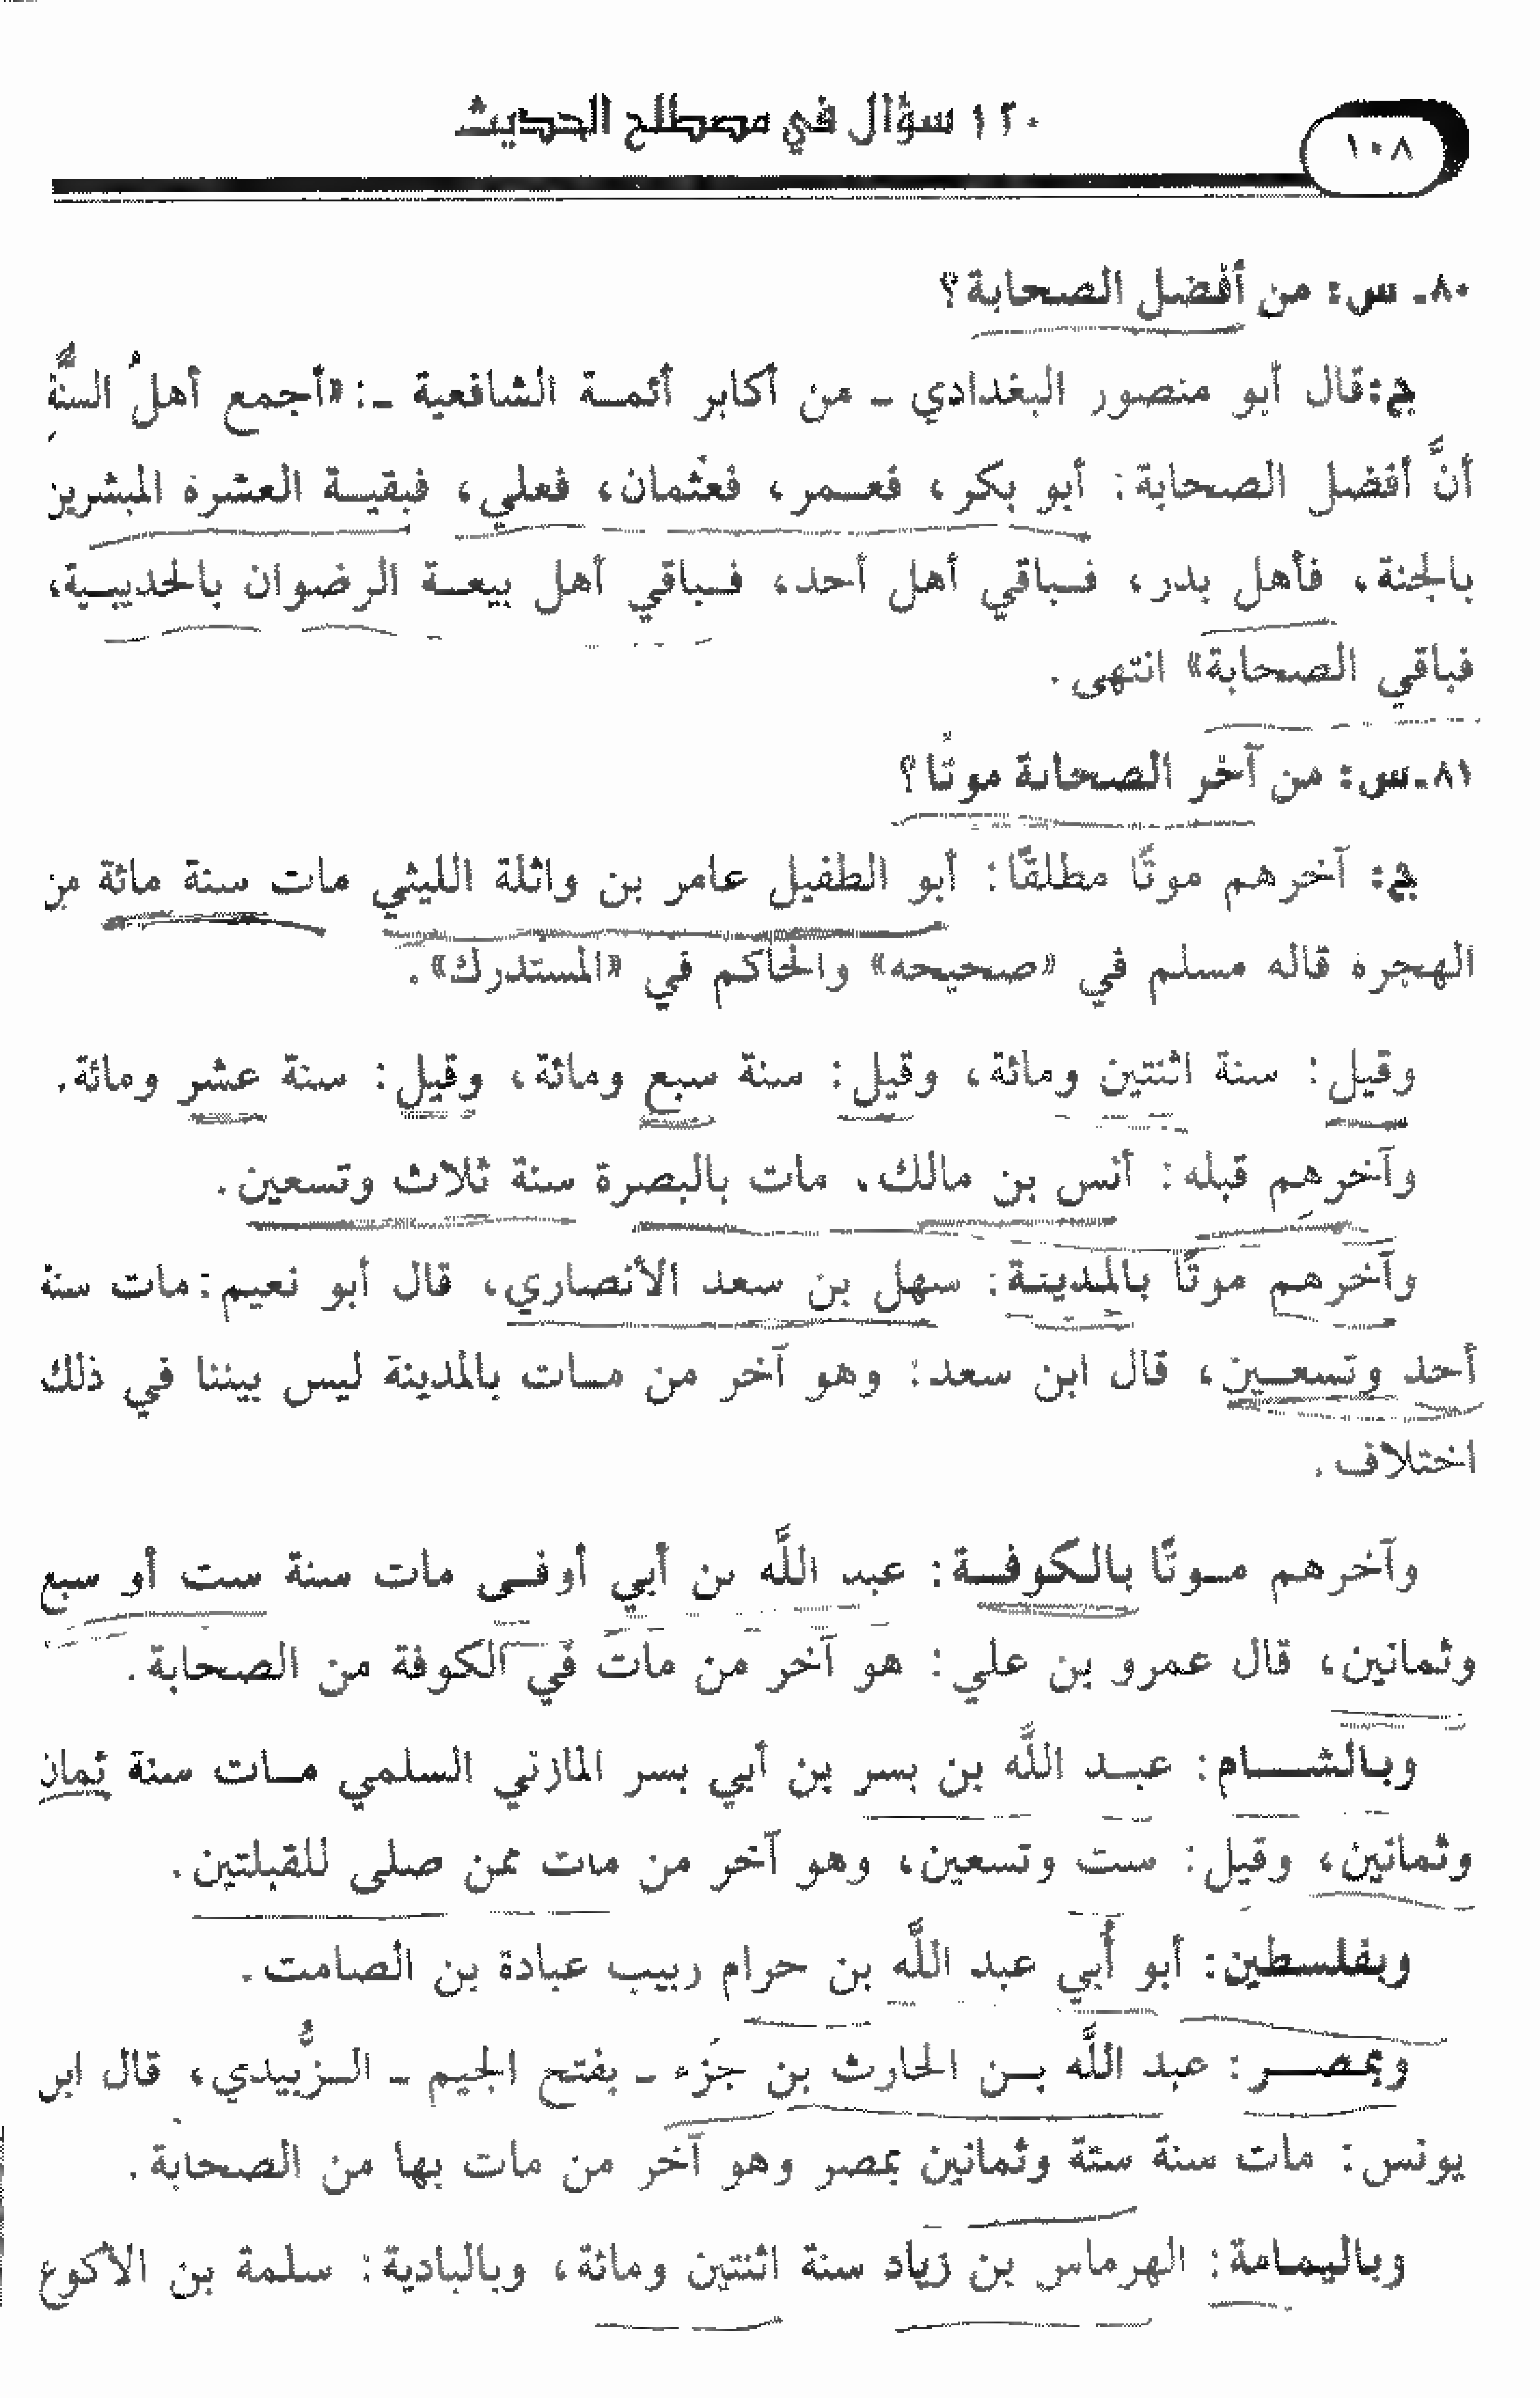 ١٠٨
١٢٠ سؤال في مصطلح الحديث
٨٠ـ س: من أفضل الصحابة؟
ج: قال أبو منصور البغدادي ـ من أكابر أئمة الشافعية ـ: «أجمع أهلُ السنَّةِ
أنَّ أفضل الصحابة: أبو بكر، فعمر، فعثمان، فعلي، فبقية العشرة المبشرين
بالجنة، فأهل بدر، فباقي أهل أحد، فباقي أهل بيعة الرضوان بالحديبية،
فباقي الصحابة» انتهى.
٨١ـ س: من آخر الصحابة موتًا؟
ج: آخرهم موتًا مطلقًا: أبو الطفيل عامر بن واثلة الليثي مات سنة مائة من
الهجرة قاله مسلم في «صحيحه» والحاكم في «المستدرك».
وقيل: سنة اثنتين ومائة، وقيل: سنة سبع ومائة، وقيل: سنة عشر ومائة.
وآخرهم قبله: أنس بن مالك، مات بالبصرة سنة ثلاث وتسعين.
وآخرهم موتًا بالمدينة: سهل بن سعد الأنصاري، قال أبو نعيم: مات سنة
أحد وتسعين، قال ابن سعد: وهو آخر من مات بالمدينة ليس بيننا في ذلك
اختلاف.
وآخرهم موتًا بالكوفة: عبد اللَّه بن أبي أوفى مات سنة ست أو سبع
وثمانين، قال عمرو بن علي: هو آخر من مات في الكوفة من الصحابة.
وبالشام: عبد اللَّه بن بسر بن أبي بسر المازني السلمي مات سنة ثمان
وثمانين، وقيل: ست وتسعين، وهو آخر من مات ممن صلى للقبلتين.
وبفلسطين: أبو أُبي عبد اللَّه بن حرام ربيب عبادة بن الصامت.
وبمصر: عبد اللَّه بن الحارث بن جَزء ـ بفتح الجيم ـ الزُّبيدي، قال ابن
يونس: مات سنة ستة وثمانين بمصر وهو آخر من مات بها من الصحابة.
وباليمامة: الهرماس بن زياد سنة اثنتين ومائة، وبالبادية: سلمة بن الأكوع